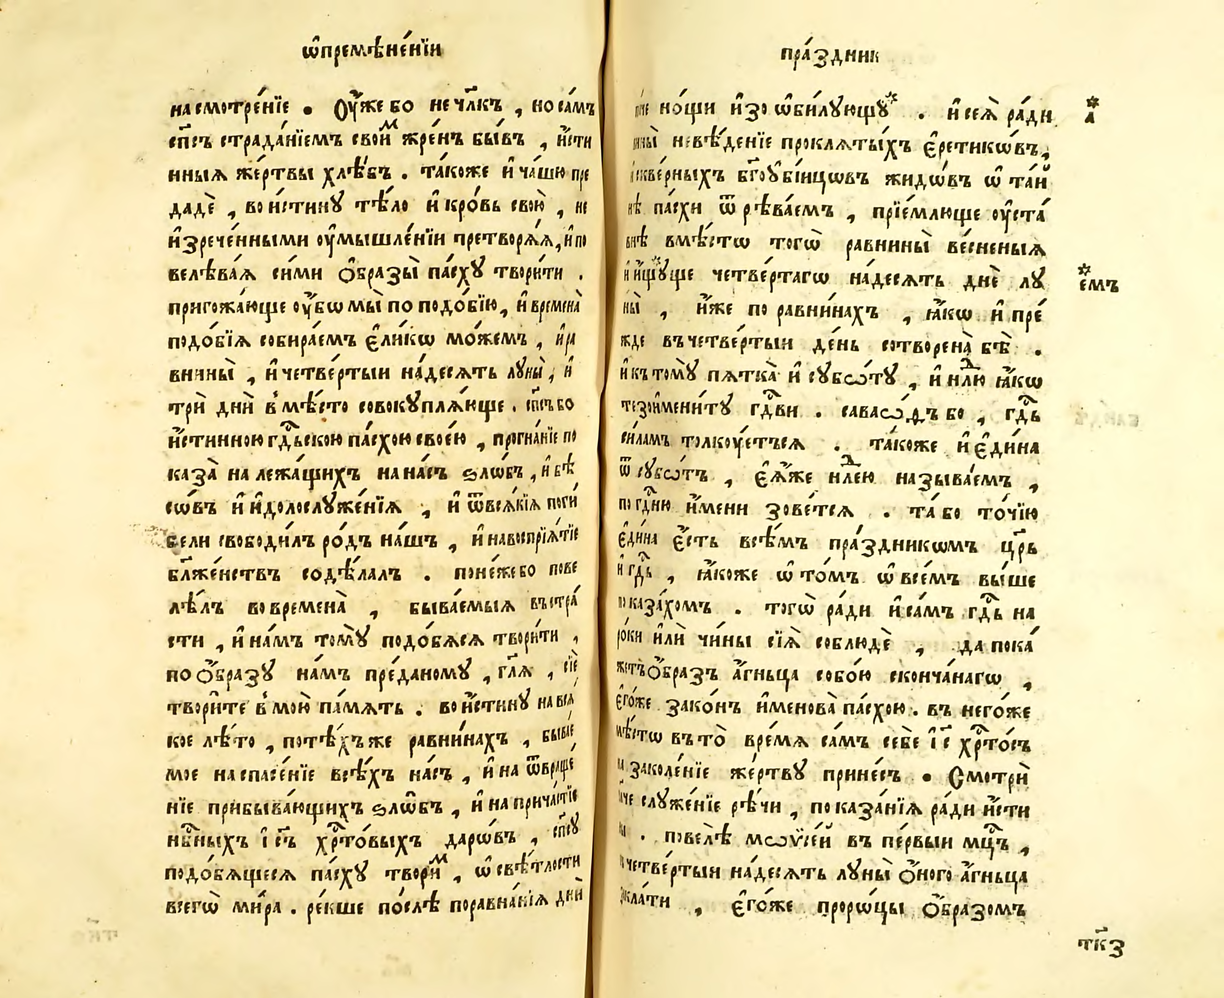 ѡ҆премѣне́нїи
насмотре́нїе . Оу҆́же бо не чл҃къ , но са́мъ
сп҃съ страда́нїемъ свои́ᷟ жре́нъ бы́въ , и҆́сти
нныѧ же́ртвы хлѣ́бъ . та́коже и҆ ча́шю пре
дадѐ , во и҆́стину тѣ́ло и҆ кро́вь свою̀ , не
и҆зрече́нными оу҆мышле́нїи претворѧ́ѧ , и҆ по
велѣва́ѧ си́ми ѻ҆́бразы па́сху твори́ти .
пригожа́юще оу҆́бѡ мы̀ по подо́бїю , и҆ времена̀
подо́бїѧ собира́емъ є҆ли́кѡ мо́жемъ , и҆ ра
внины̀ , и҆ четве́ртыи на́десѧть луны̀ , и҆
трѝ дни̑ в̾мѣ́сто совокуплѧ́юще . сп҃съ бо
и҆́стинною гдⷭ҇ьскою па́схою свое́ю , прогна́нїе по
каза̀ на лежа́щихъ на на́съ ѕло́бъ , и҆ бѣ
сѡ́въ и҆ и҆долослуже́нїѧ , и҆ ѿ всѧ́кїѧ поги́
бели свободи́лъ ро́дъ на́шъ , и҆ на воспрїѧ́тїе
бл҃же́нствъ содѣ́лалъ . поне́же бо пове
лѣ́лъ во времена̀ , быва́емыѧ въ стра́
сти , и҆ на́мъ тому̀ подо́бѧсѧ твори́ти ,
по ѻ҆́бразу на́мъ пре́даному , гл҃ѧ , сїѐ
твори́те в̾ мою̀ па́мѧть . во и҆́стину на всѧ́
кое лѣ́то , по тѣ́хъ же равни́нахъ , бы́вше
мое на спасе́нїе всѣ́хъ на́съ , и҆ на ѿвраще́
нїе прибыва́ющихъ ѕло́бъ , и҆ на прича́стїе
нбⷭ҇ныхъ і҆с҃ъ хрⷭ҇то́выхъ дарѡ́въ , сп҃су
подо́бѧщесѧ па́сху твори́ᷟ , ѡ҆ свѣ́тлости
всегѡ̀ ми́ра . ре́кше по́слѣ поравна́нїѧ дни́й
пра́здник
но́щи и҆зо ѡ҆би́лующу . и҆ сеѧ̀ ра́ди
невѣ́денїе проклѧ́тыхъ є҆ретикѡ́въ ,
скве́рныхъ бг҃оубі́ицѡвъ жидѡ́въ ѡ҆ та́й
нѣ па́схи ѿрѣва́емъ , прїе́млюще оу҆ста́
внѣ вмѣ́стѡ тогѡ̀ равнины̀ ве́сненыѧ
и҆ и҆́щуще четве́ртагѡ на́десѧть днѐ лу
ны̀ , и҆́же по равни́нахъ , ꙗ҆́кѡ и҆ пре́
жде въ четве́ртыи де́нь сотворена̀ бѣ̀ .
и҆ къ тому̀ пѧтка̀ и҆ субѡ́ту , и҆ нⷣлю ꙗ҆́кѡ
тезои́мениту гдⷭ҇ви . саваѡ́ѳъ бо , гдⷭ҇ь
си́ламъ толку́етъсѧ . та́коже и҆ є҆ди́на
ѿ субѡ́тъ , є҆ѧ́же нⷣлею называ́емъ ,
по гдⷭ҇ню и҆́мени зове́тсѧ . та́ бо то́чїю
є҆ди́на є҆́сть всѣ́мъ пра́здникѡмъ цр҃ь
и҆ гдⷭ҇ь , ꙗ҆́коже ѡ҆ то́мъ ѡ҆ все́мъ вы́ше
показа́хомъ . тогѡ̀ ра́ди и҆ са́мъ гдⷭ҇ь на
ро́ки и҆лѝ чи́ны сїѧ̀ соблюдѐ , да пока́
жетъ ѻ҆́бразъ а҆́гньца собо́ю сконча́нагѡ ,
є҆го́же зако́нъ и҆менова̀ па́схою . въ него́же
мѣ́стѡ въ то̀ вре́мѧ са́мъ себѐ і҆с҃ хрⷭ҇то́съ
заколе́нїе же́ртву прине́съ . Смотрѝ
служе́нїе рѣ́чи , показа́нїѧ ра́ди и҆́сти
. повелѣ̀ мѡѵсе́й въ пе́рвыи мцⷭ҇ъ ,
четве́ртыи на́десѧть луны̀ ѻ҆́ного а҆́гньца
закла́ти , є҆го́же проро́цы ѻ҆́бразомъ
а
емъ
тк҃з